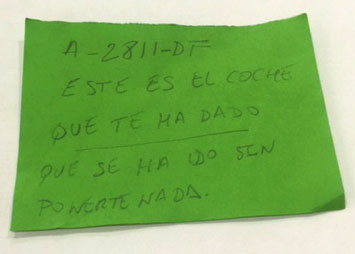 A-2811-DF
ESTE ES EL COCHE
QUE TE HA DADO
QUE SE HA IDO SIN
PONERTE NADA.